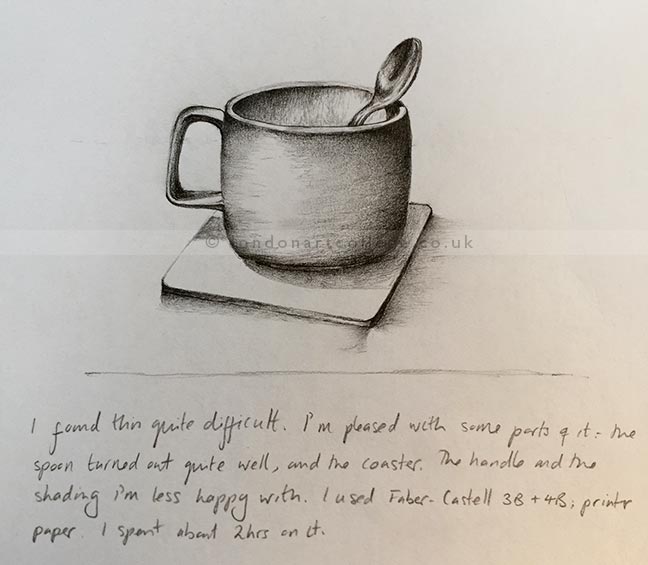 © londonartcollege.co.uk
I found this quite difficult. I'm pleased with some parts of it: the
spoon turned out quite well, and the coaster. The handle and the
shading i'm less happy with. I used Faber-Castell 3B + 4B; printer
paper. I spent about 2hrs on it.